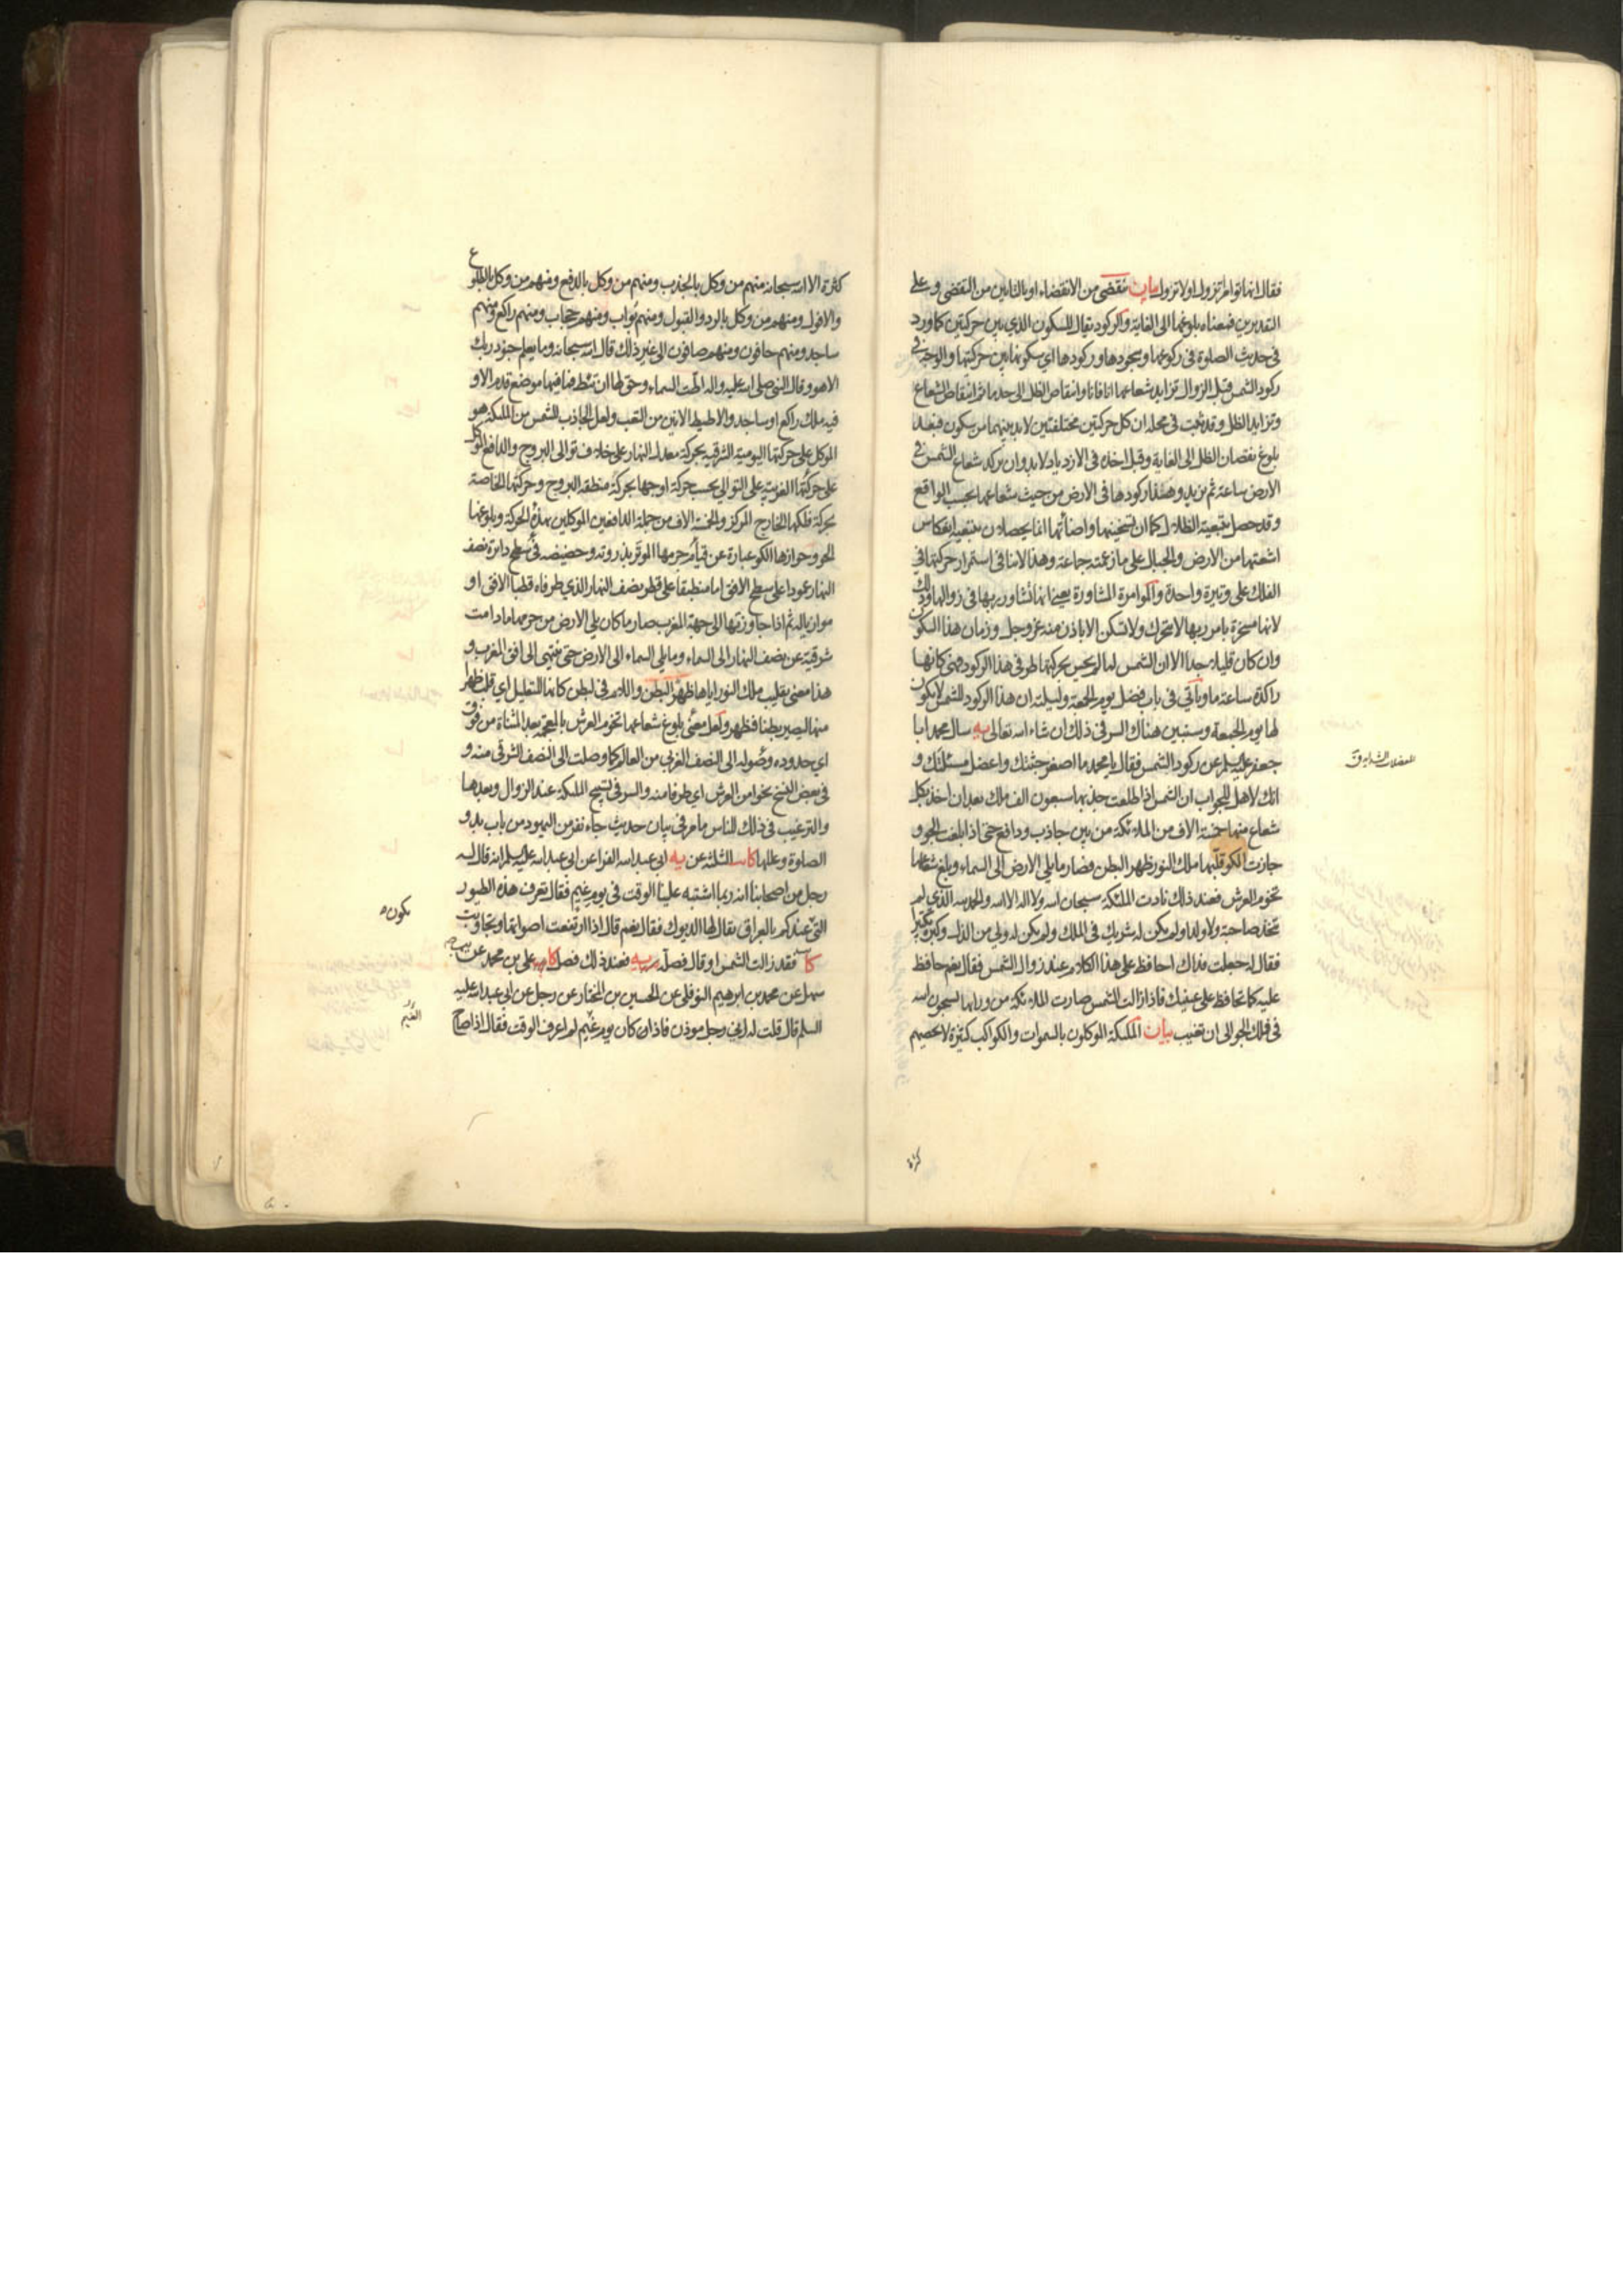 فقال انها تؤامر تزول او لا تزول بيان تقضى من الانقضاء او بالتاءين من التقضى وعلى
التقديرين فمعناه بلوغها الى الغاية والركود يقال للسكون الذي بين حركتين كما ورد
في حديث الصلوة في ركوعها وسجودها وركودها اي سكونها بين حركتيها والوجه في
ركود الشمس قبل الزوال تزايد شعاعها انا فانا وانتقاص الظل الى حد ما ثم انتقاص الشعاع
وتزايد الظل وقد ثبت في محله ان كل حركتين مختلفتين لابد بينهما من سكون فبعد
بلوغ نقصان الظل الى الغاية وقبل اخذه في الازدياد لابد وان يركد شعاع الشمس في
الارض ساعة ثم يزيد وهذا ركودها في الارض من حيث شعاعها بحسب الواقع
وقد حصل بتبعية الظلال كما ان تسخينها واضاءتها انما يحصلان بتبعية انعكاس
اشعتها من الارض والجبال على ما زعمته جماعة وهذا لا ينافي استمرار حركتها في
الفلك على وتيرة واحدة والمؤامرة المشاورة يعني انها تشاور ربها في زوالها وذلك
لانها مسخرة بامر ربها لا تتحرك ولا تسكن الا باذن منه عز وجل وزمان هذا السكون
وان كان قليلا جدا الا ان الشمس لما لم يحس بحركتها طرفي هذا الركود فهي كانها
راكدة ساعة ما وياتي في باب فضل يوم الجمعة وليلته ان هذا الركود للشمس لا يكون
لها يوم الجمعة وسنبين هناك السر في ذلك ان شاء الله تعالى يه سال محمد ابا
جعفر عليه السلم عن ركود الشمس فقال يا محمد ما اصغر جثتك واعضل مسئلتك و
انك لاهل للجواب ان الشمس اذا طلعت جذبها سبعون الف ملك بعد ان اخذ بكل
شعاع منها خمسة الاف من الملائكة من بين جاذب ودافع حتى اذا بلغت الجو و
جازت الكو قلبها ملك النور ظهر البطن فصار ما يلي الارض الى السماء وبلغ شعاعها
تخوم العرش فعند ذلك نادت الملئكة سبحان الله ولا اله الا الله والحمد لله الذي لم
يتخذ صاحبة ولا ولدا ولم يكن له شريك في الملك ولم يكن له ولي من الذل وكبره تكبيرا
فقال له جعلت فداك احافظ على هذا الكلام عند زوال الشمس فقال نعم حافظ
عليه كما تحافظ على عينيك فاذا زالت الشمس صارت الملائكة من ورائها يسبحون الله
في فلك الجو الى ان تغيب بيان الملئكة الموكلون بالسموات والكواكب كثيرة لا يحصيهم
كثرة
كثرة الا الله سبحانه منهم من وكل بالجذب ومنهم من وكل بالدفع ومنهم من وكل بالطلوع
والافول ومنهم من وكل بالرد والقبول ومنهم بواب ومنهم حجاب ومنهم راكع ومنهم
ساجد ومنهم حافون ومنهم صافون الى غير ذلك قال الله سبحانه وما يعلم جنود ربك
الا هو وقال النبي صلى الله عليه واله اطت السماء وحق لها ان تئط فما فيها موضع قدم الا و
فيه ملك راكع او ساجد والاطيط الانين من التعب ولعل الجاذب للشمس من الملئكة هو
الموكل على حركتها اليومية الشرقية بحركة معدل النهار على خلاف توالى البروج والدافع الموكل
على حركتها الغربية على التوالي بحسب حركة اوجها بحركة منطقة البروج وحركتها الخاصة
بحركة فلكها الخارج المركز والخمسة الاف من جملة الدافعين الموكلين بهذه الحركة وبلوغها
الجو وجوازها الكو عبارة عن قيام جرمها الموتر بذروته وحضيضه في سطح دائرة نصف
النهار عمودا على سطح الافق اما منطبقا على قطر نصف النهار الذي طرفاه قطبا الافق او
موازيا له ثم اذا جاوزتها الى جهة المغرب صار ما كان يلي الارض من جرمها ما دامت
شرقية عن نصف النهار الى السماء وما يلي السماء الى الارض حتى ينتهي الى افق المغرب و
هذا معنى تقليب ملك النور اياها ظهر البطن واللام في لبطن كانها للتعليل اي قلب ظهرا
منها ليصير بطنا فظهر ولعل معنى بلوغ شعاعها تخوم العرش بالمعجمة بعد المثناة من فوق
اي حدوده وصوله الى النصف الغربي من العالم كما وصلت الى النصف الشرقي منه و
في بعض النسخ نحوا من العرش اي طرفا منه والسر في تسبيح الملئكة عند الزوال وبعدها
والترغيب في ذلك للناس ما مر في بيان حديث جاء نفر من اليهود من باب بدو
الصلوة وعللها كا الثلثة عن يه ابي عبد الله الفراء عن ابي عبد الله عليه السلم انه قال له
رجل من اصحابنا انه ربما اشتبه علينا الوقت في يوم غيم فقال تعرف هذه الطيور
التي عندكم بالعراق يقال لها الديوك فقال نعم قال اذا ارتفعت اصواتها وتجاوبت
كا فقد زالت الشمس او قال فصله يه فعند ذلك فصل كا علي بن محمد عن
سهل عن محمد بن ابرهيم النوفلي عن الحسين بن المختار عن رجل عن ابي عبد الله عليه
السلم قال قلت له اني رجل مؤذن فاذا كان يوم غيم لم اعرف الوقت فقال اذا صاح
يكون
الغيم